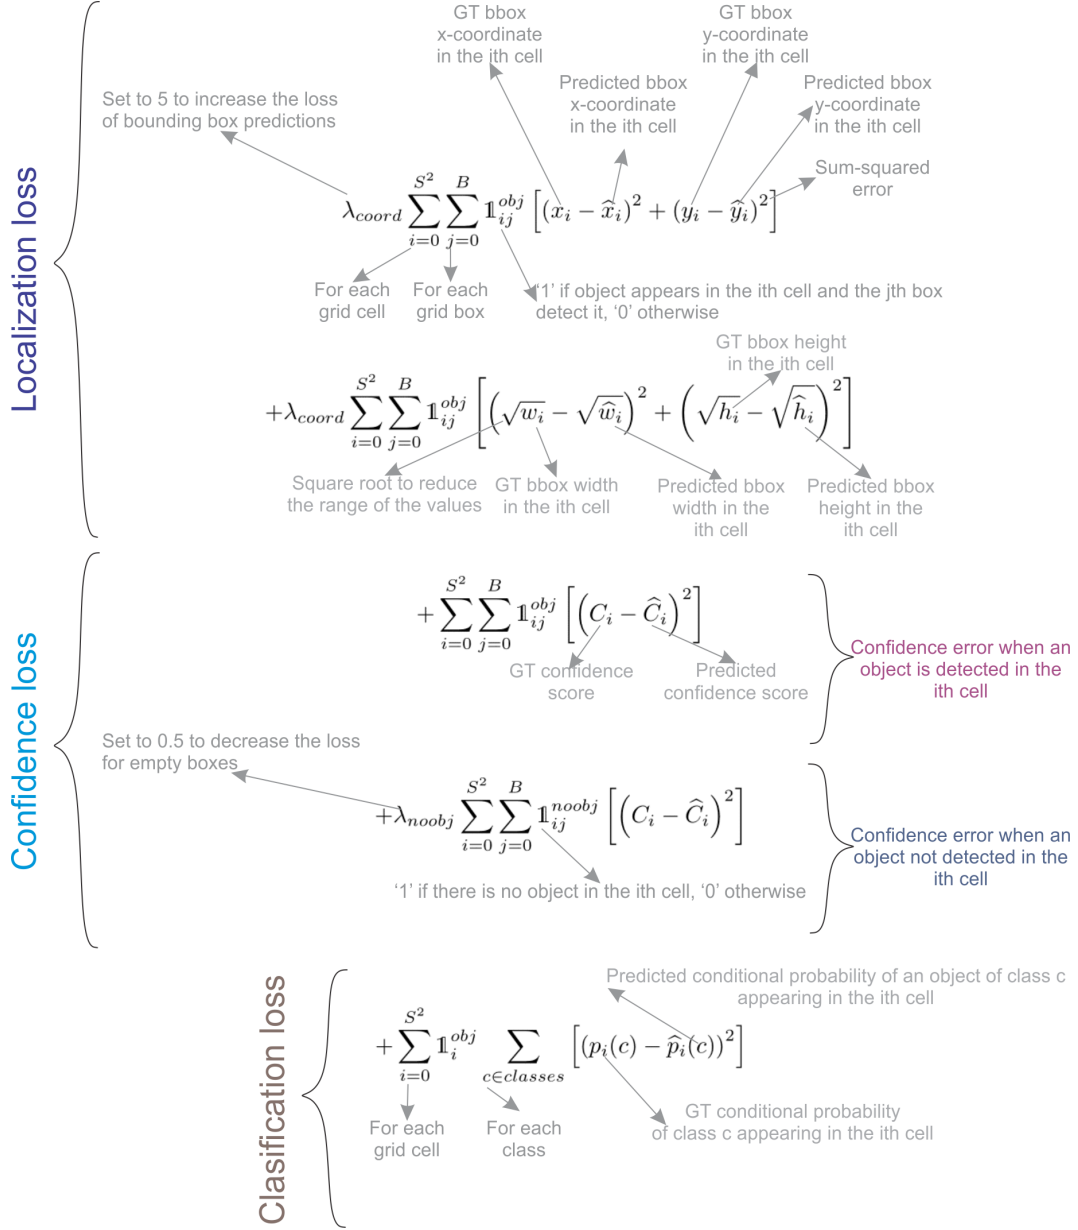 GT bbox
x-coordinate
in the ith cell
GT bbox
y-coordinate
in the ith cell
Predicted bbox
x-coordinate
in the ith cell
Predicted bbox
y-coordinate
in the ith cell
Set to 5 to increase the loss
of bounding box predictions
Sum-squared
error
Localization loss
λ_coord ∑_{i=0}^{S^2} ∑_{j=0}^{B} 𝟙_{ij}^{obj} [(x_i − x̂_i)^2 + (y_i − ŷ_i)^2]
For each
grid cell
For each
grid box
‘1’ if object appears in the ith cell and the jth box
detect it, ‘0’ otherwise
GT bbox height
in the ith cell
+λ_coord ∑_{i=0}^{S^2} ∑_{j=0}^{B} 𝟙_{ij}^{obj} [(√w_i − √ŵ_i)^2 + (√h_i − √ĥ_i)^2]
Square root to reduce
the range of the values
GT bbox width
in the ith cell
Predicted bbox
width in the
ith cell
Predicted bbox
height in the
ith cell
Confidence loss
+ ∑_{i=0}^{S^2} ∑_{j=0}^{B} 𝟙_{ij}^{obj} [(C_i − Ĉ_i)^2]
GT confidence
score
Predicted
confidence score
Confidence error when an
object is detected in the
ith cell
Set to 0.5 to decrease the loss
for empty boxes
+λ_noobj ∑_{i=0}^{S^2} ∑_{j=0}^{B} 𝟙_{ij}^{noobj} [(C_i − Ĉ_i)^2]
‘1’ if there is no object in the ith cell, ‘0’ otherwise
Confidence error when an
object not detected in the
ith cell
Clasification loss
Predicted conditional probability of an object of class c
appearing in the ith cell
+ ∑_{i=0}^{S^2} 𝟙_i^{obj} ∑_{c∈classes} [(p_i(c) − p̂_i(c))^2]
For each
grid cell
For each
class
GT conditional probability
of class c appearing in the ith cell